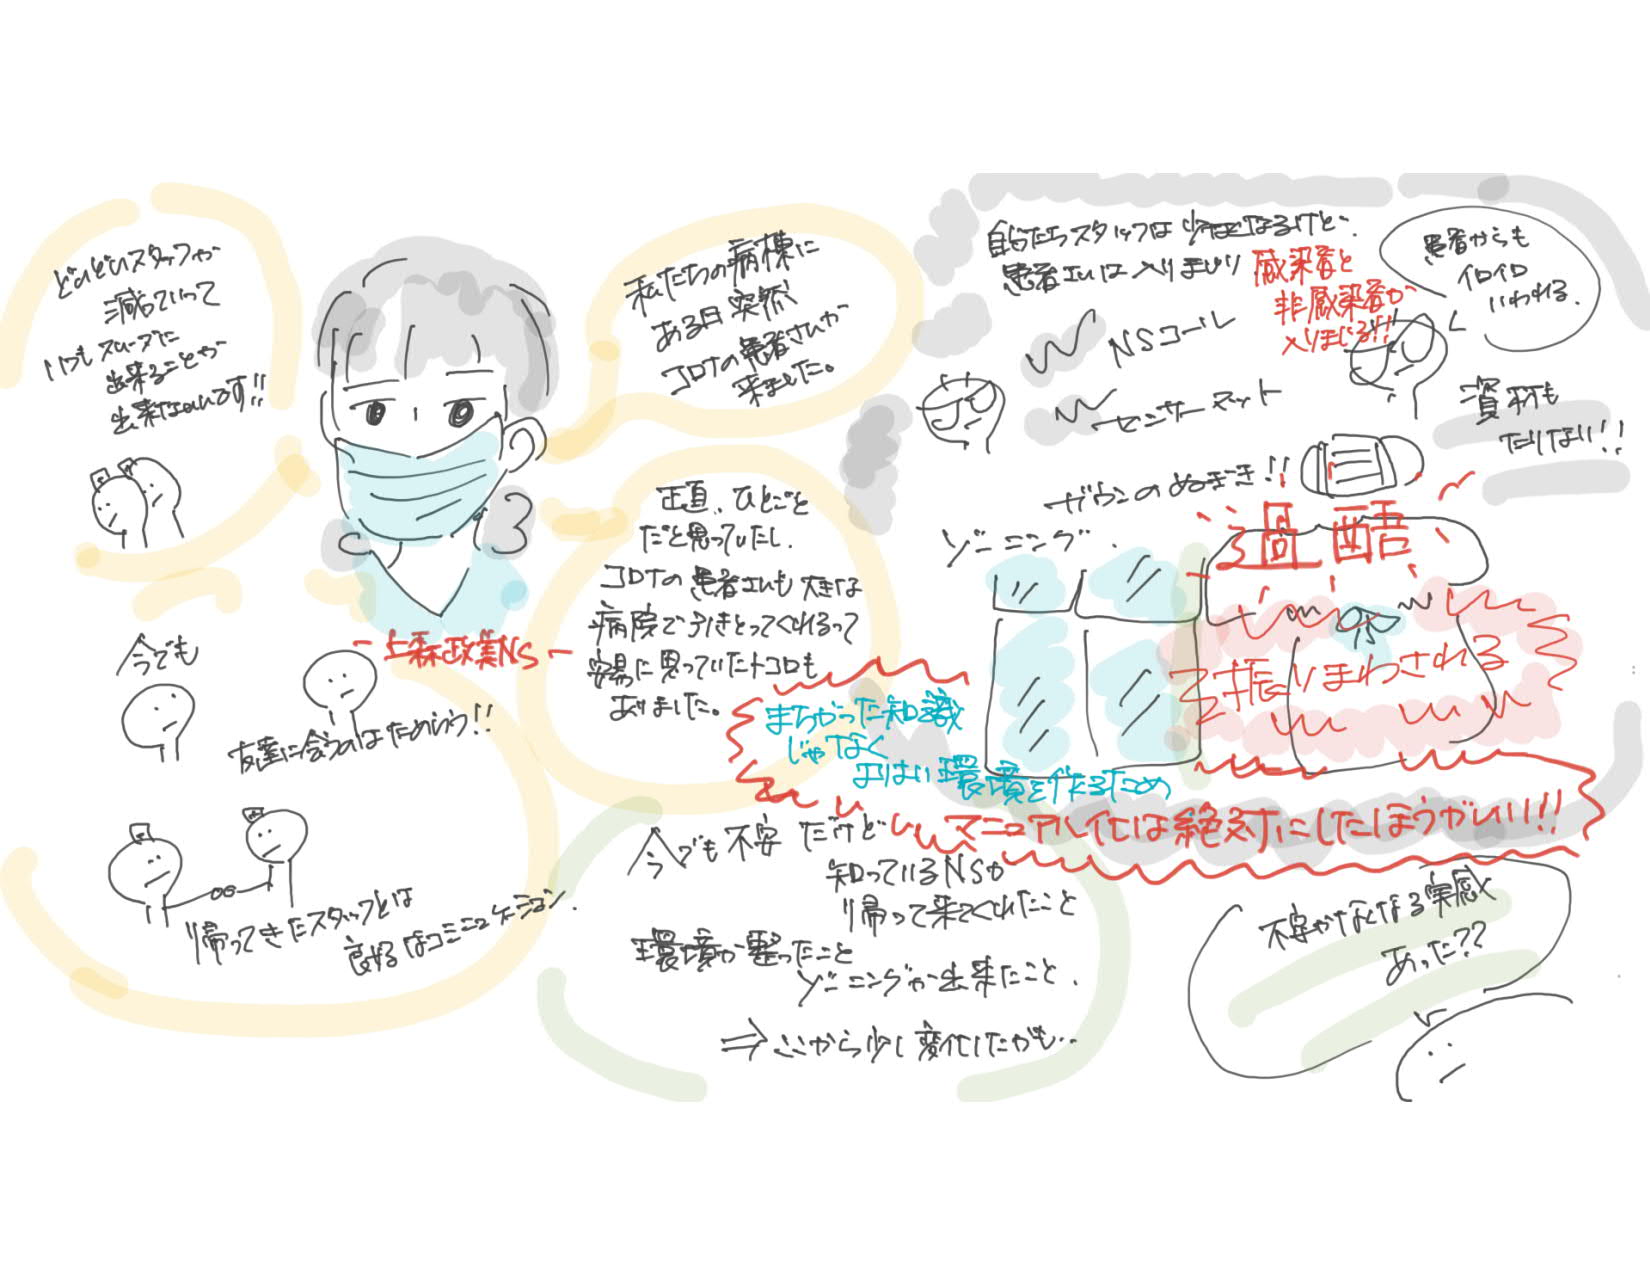 どんどんスタッフが
減っていって
いつもスムーズに
出来ることが
出来ないんです!!
私たちの病棟に
ある日突然
コロナの患者さんが
来ました。
正直、ひとごと
だと思っていたし、
コロナの患者さんも大きな
病院で引きとってくれるって
安易に思っていたトコロも
ありました。
NS
今でも
友達に会うのはためらう!!
帰ってきたスタッフとは
良好なコミニュケーション.
自分たちスタッフは少なくなるけど、
患者さんは入りまじり
感染者と
非感染者が
入りまじる!!
患者からも
イロイロ
いわれる.
NSコール
センサーマット
ガウンのぬぎき!!
資材も
たりない!!
ゾーニング.
過酷
振りまわされる
まちがった知識
じゃなく
よりよい環境を作るため
マニュアル化は絶対にしたほうがいい!!!
今でも不安だけど
知っているNSが
帰って来てくれたこと
環境が整ったこと
ゾーニングが出来たこと.
⇒ここから少し変化したかも..
不安がなくなる実感
あった??